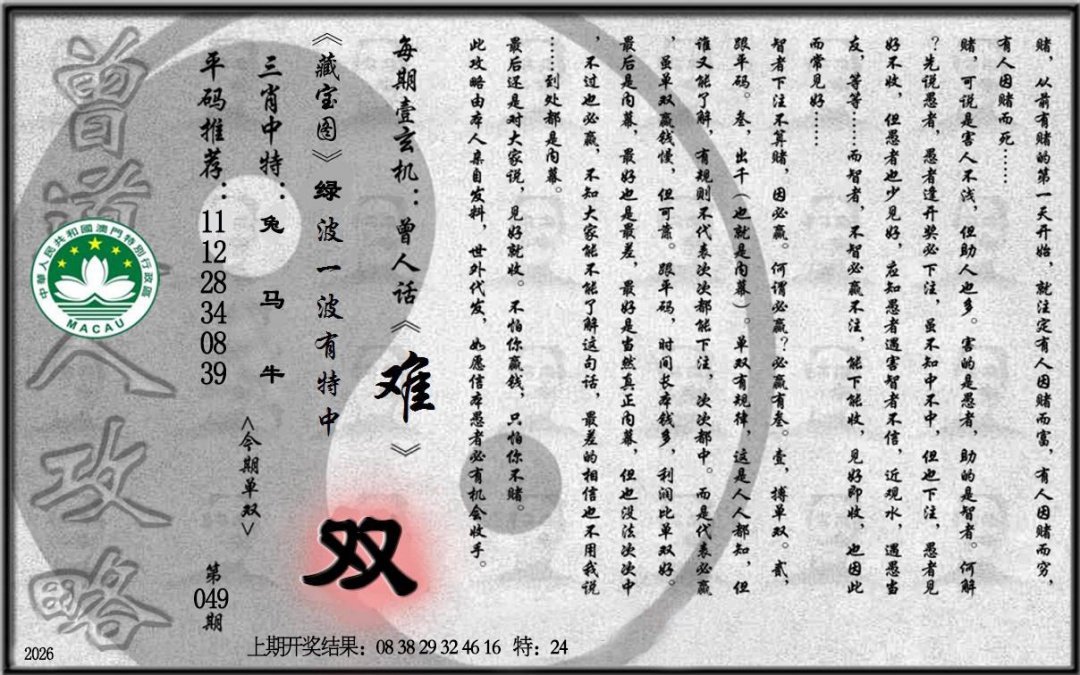 赌，从前有赌的第一天开始，就注定有人因赌而富，有人因赌而穷，
有人因赌而死……
赌，可说是害人不浅，但助人也多。害的是愚者，助的是智者。何解
？先说愚者，愚者逢开奖必下注，虽不知中不中，但也下注，愚者见
好不收，但愚者也少见好，应知愚者遇害智者不信，近观水，遇愚当
友，等等……而智者，不智必赢不注，能下能收，见好即收，也因此
而常见好……
智者下注不算赌，因必赢。何谓必赢？必赢有叁。壹，搏单双。贰，
跟平码。叁，出千（也就是内幕）。单双有规律，这是人人都知，但
谁又能了解，有规则不代表次次都能下注，次次都中。而是代表必赢
，虽单双赢钱慢，但可靠。跟平码，时间长本钱多，利润比单双好。
最后是内幕，最好也是最差，最好是当然真正内幕，但也没法次次中
，不过也必赢，不知大家能不能了解这句话，最差的相信也不用我说
……到处都是内幕。
最后还是对大家说，见好就收。不怕你赢钱，只怕你不赌。
此攻略由本人亲自发料，世外代发，如愿信本愚者必有机会收手。
每期壹玄机：曾人话《难》
《藏宝图》绿波一波有特中
双
三肖中特：兔 马 牛
<今期单双>
平码推荐：11 12 28 34 08 39
第049期
曾道人攻略
中華人民共和國澳門特別行政區
MACAU
上期开奖结果：08 38 29 32 46 16 特：24
2026